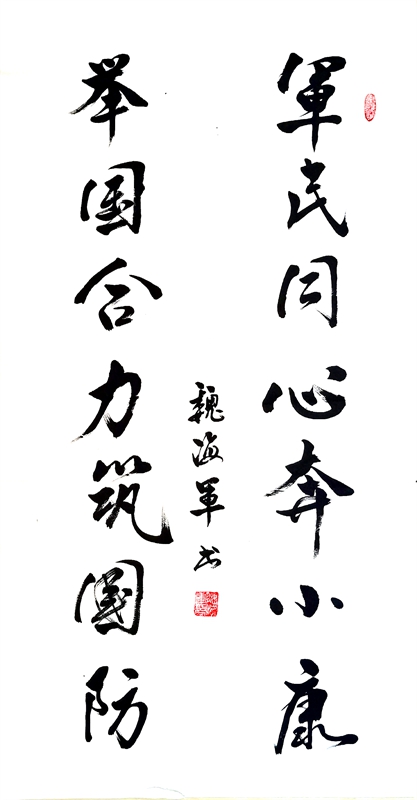 軍民同心奔小康
举国合力筑國防
魏海軍书